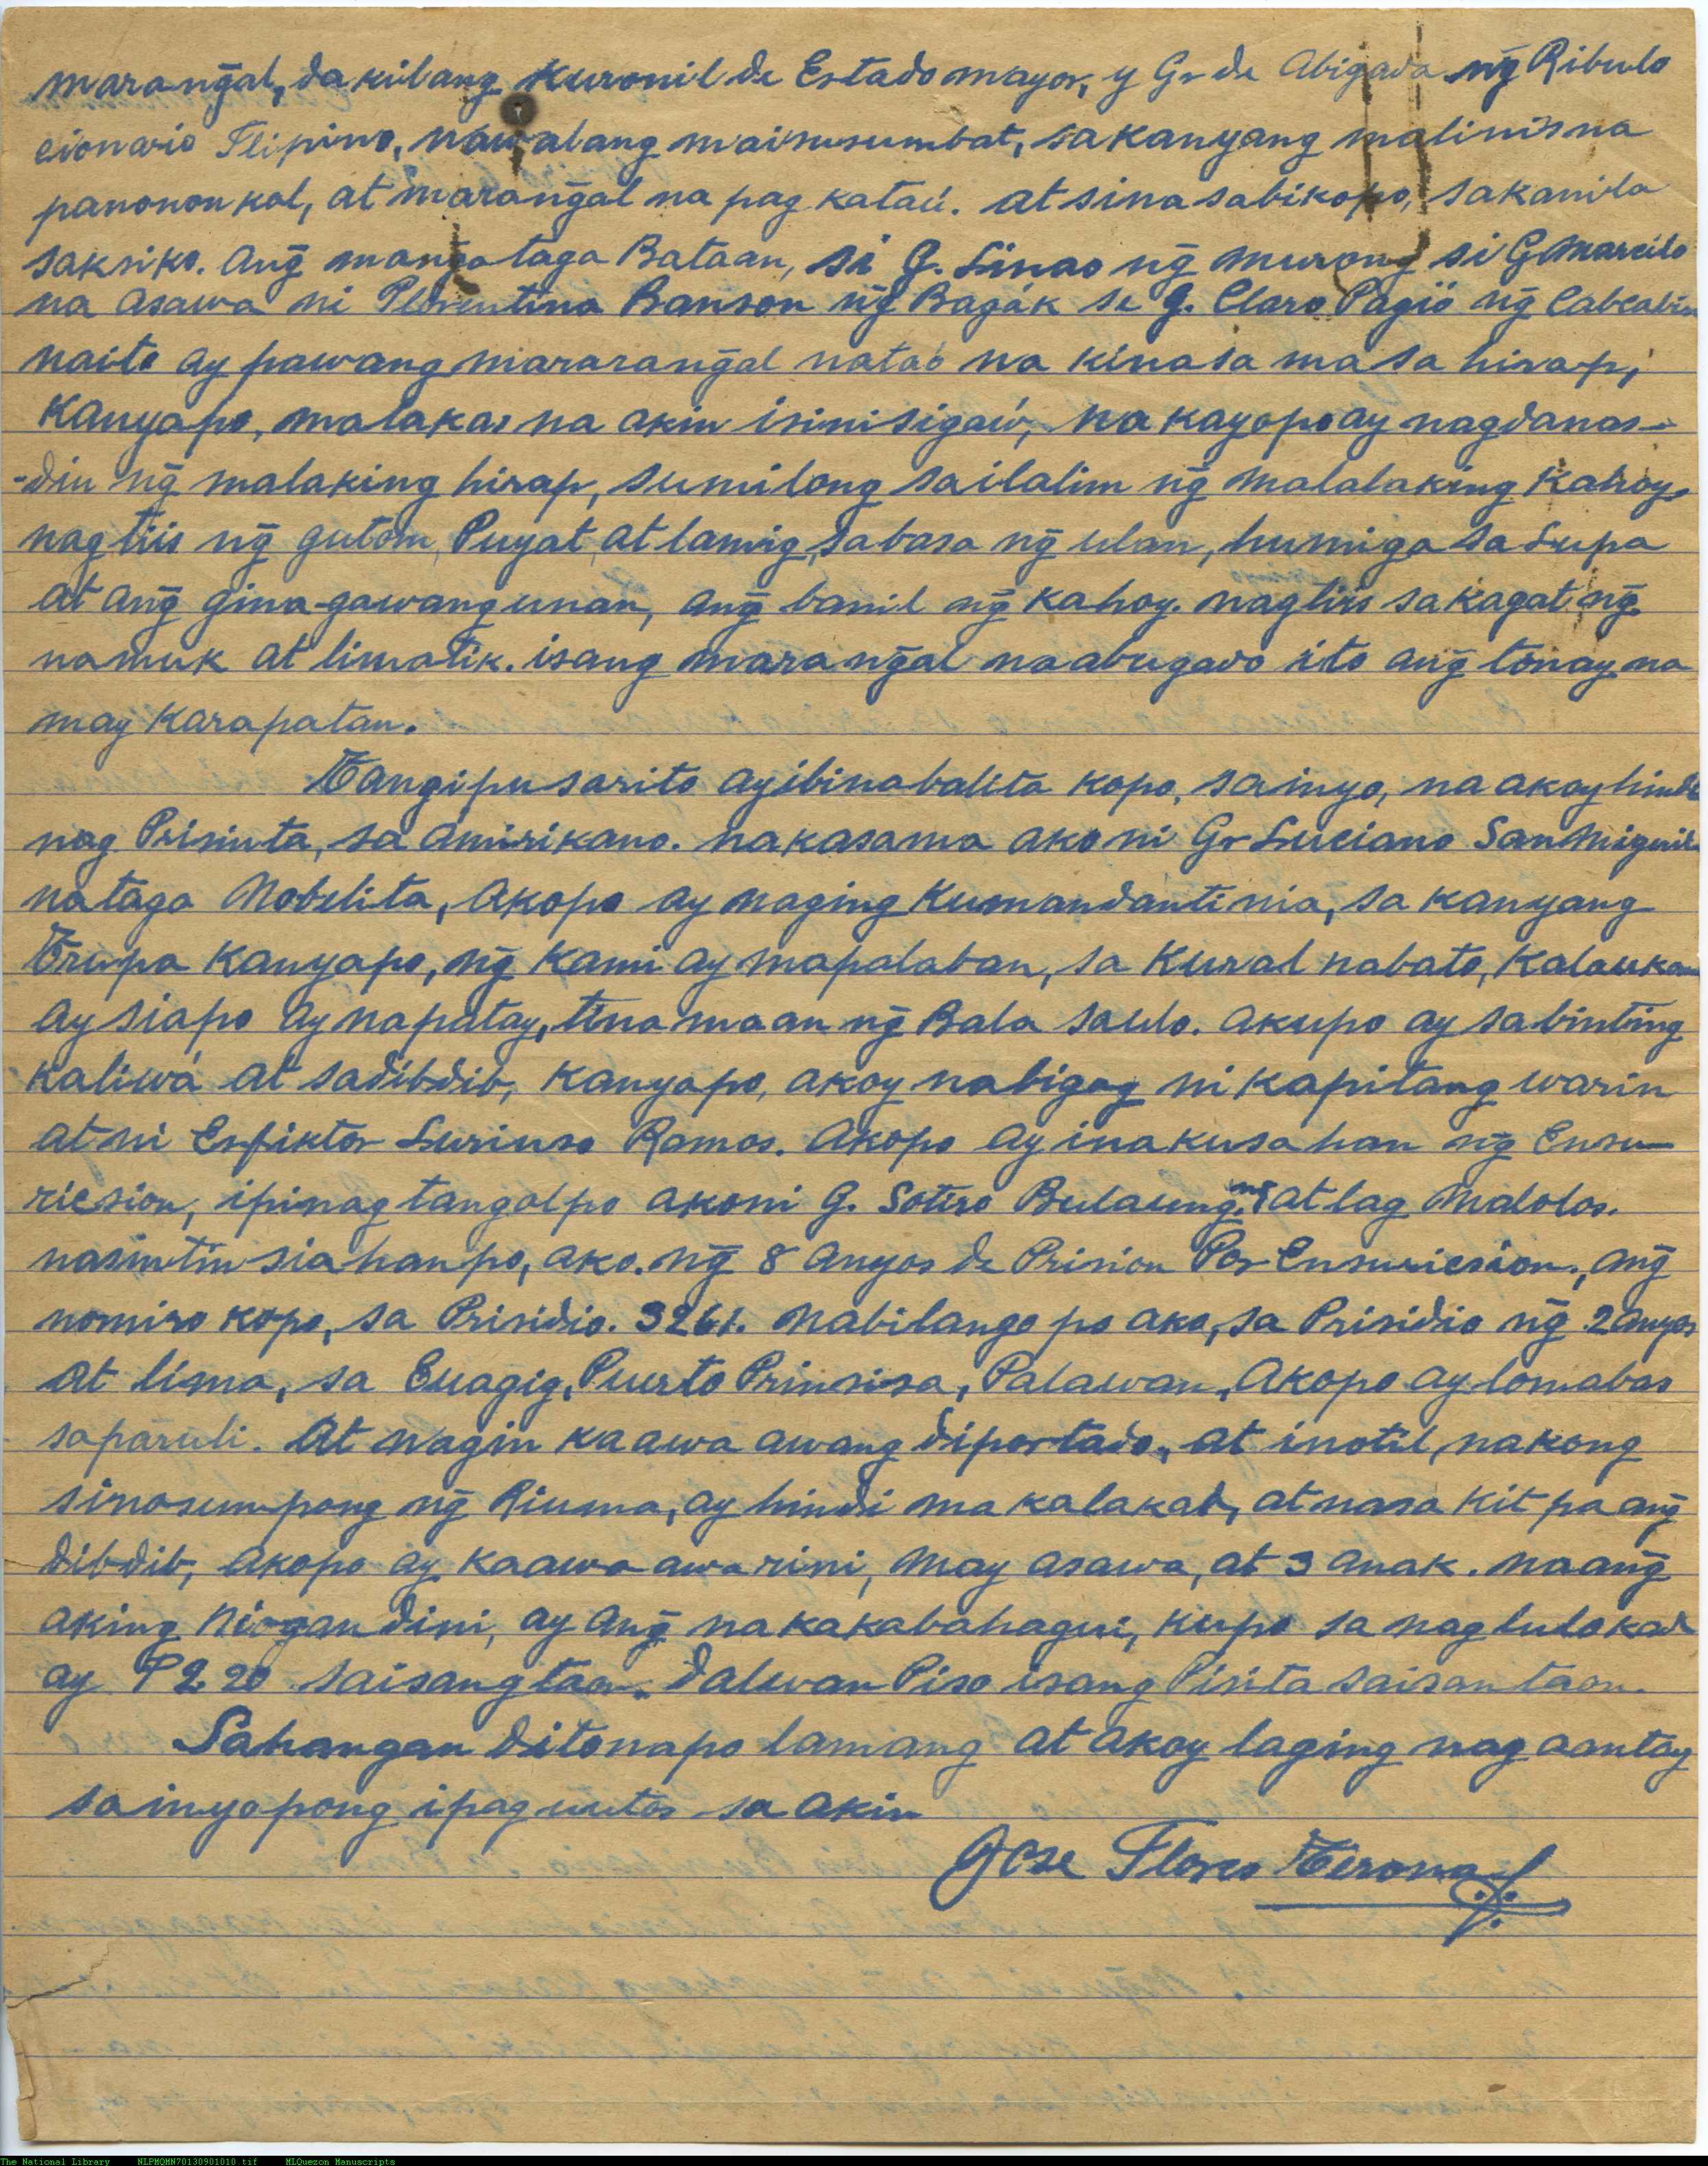 marang̃al, dakilang Kuronil de Estado mayor, y Gr de Abigada ng̃ Ribulo
cionario Flipino, nawalang maisusumbat, sa kanyang malinis na
panonon kol, at marang̃al na pag kataú. at sina sabi kopo, sa kanila
saksiko. ang̃ mang̃a taga Bataan, si G. Linao ng̃ murong si G Marcilo
na asawa ni Plorentina Banson ng̃ Bagák si G. Claro Pagió ng̃ Cabcabin
naito ay pawang mararang̃al nataó na kinasa ma sa hirap,
Kanyapo, malakas na akin isinisigaw, na kayopo ay nagdanas-
-din ng̃ malaking hirap, sumilong sailalim ng̃ malalaking Kahoy,
nagtiis ng̃ gutom, Puyat, at lamig, sabasa ng̃ ulan, humiga sa Lupa
at ang̃ gina-gawang unan, ang̃ banil ng̃ kahoy. nagtiis sa kagat ng̃
namuk at limatik. isang marang̃al na abugado ito ang̃ tonay na
may Karapatan.
Tangipu sarito ay ibinabalita kopo, sainyo, na akoy hindi
nag Prisinta, sa Amirikano. nakasama ako ni Gr Luciano San Miguil
na taga Nobelita, Akopo ay naging Kumandanti nia, sa kanyang
Trupa Kanyapo, ng̃ kami ay mapalaban, sa Kural nabato, Kalaukan
ay siapo ay napatay, tinamaan ng̃ Bala saulo. akupo ay sabinting
kaliwá at sadibdib, Kanyapo, akoy nabigag ni Kapitang warin
at ni Espiktor Luriuso Ramos. Akopo ay inakusahan ng̃ Ensu-
ricsion, ipinagtangolpo akoni G. Sotero Bulaung, ng̃ atlag Malolos.
nasintinsiahanpo, ako. ng̃ 8 anyos de Prision Por Ensuricsion., ang̃
nomiro kopo, sa Prisidio. 3261. Nabilango po ako, sa Prisidio ng̃ 2 anyos
at lima, sa Euagig, Puerto Prinsisa, Palawan, Akopo ay lomabas
saparuli. At nagin kaawa awang diportado, at inotil, nakong
sinosumpong ng̃ Riuma, ay hindi ma kalakad, at nasa kit pa ang̃
dibdib, Akopo ay kaawa awa rini, may asawa, at 3 anak. naang̃
aking Niogan dini, ay ang̃ nakakabahagui, kupo sa nag lulokad
ay ₱2.20 saisang taon. dalwan Piso isang Pisita saisan taon.
Sahangan ditonapo lamang at akoy laging nag aantay
sa inyopong ipag uutos sa akin
Jose Flores Tirona
The National Library NLPMQMN70130901010.tif MLQuezon Manuscripts